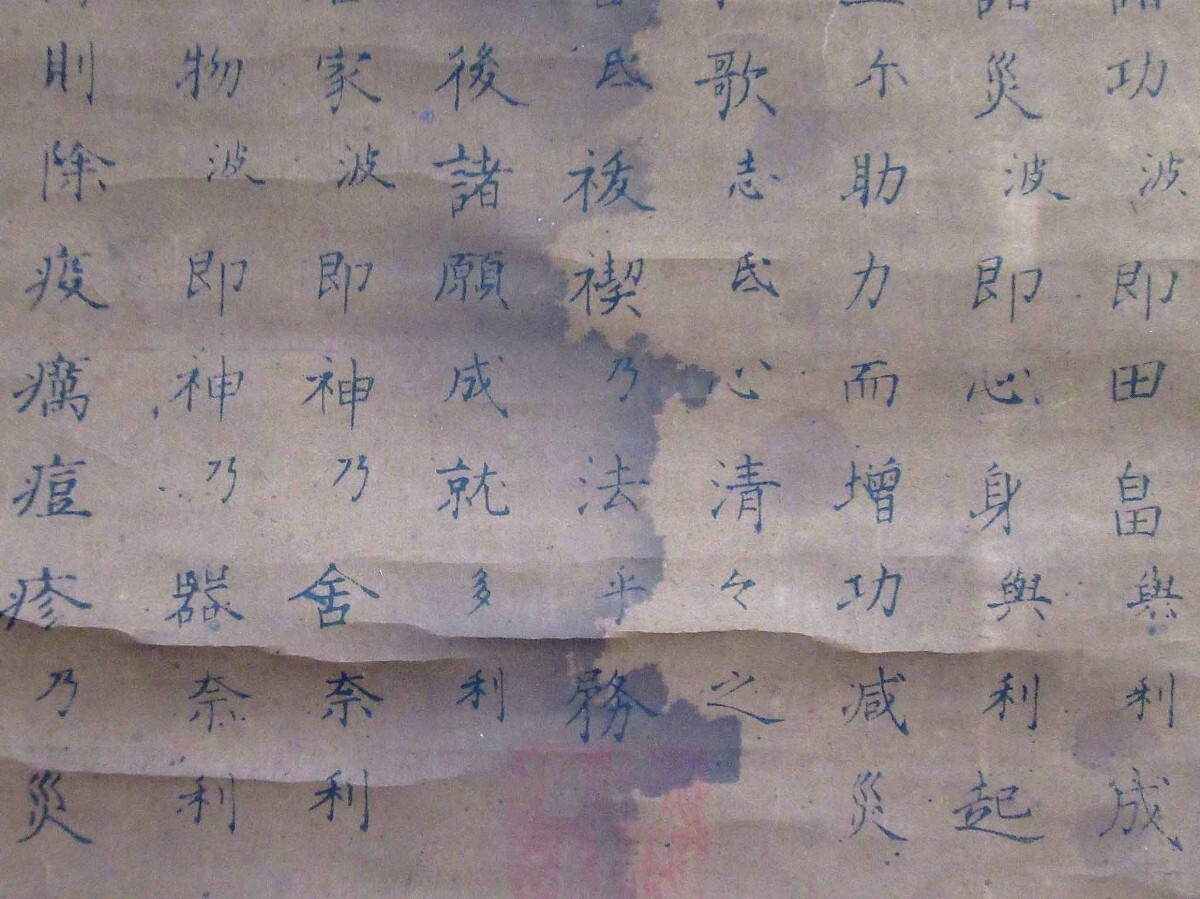 功波即田畠與利成
災波即心身與利起
尓助力而増功减災
歌志氐心清々之
氐祓禊乃法乎務
後諸願成就多利
家波即神乃舍奈利
物波即神乃器奈利
則除疫癘痘疹乃災